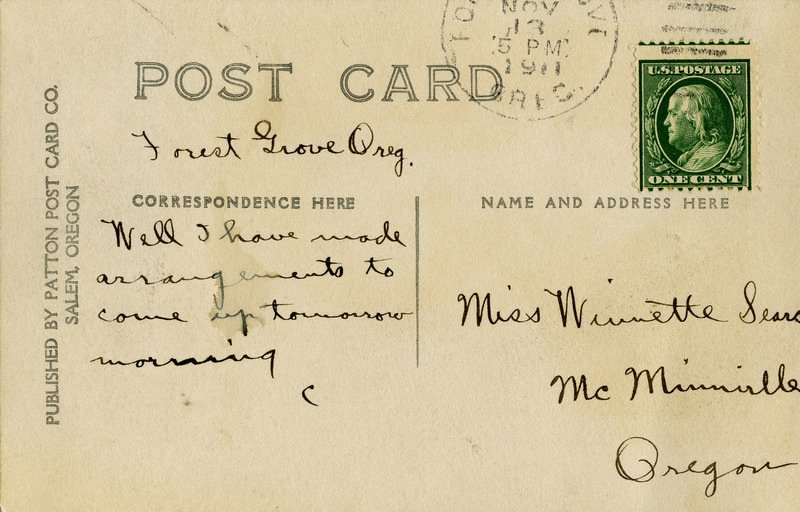 NOV
13
5 PM
1911
OREG.
U.S. POSTAGE
ONE CENT
POST CARD
Forest Grove Oreg.
CORRESPONDENCE HERE
Well I have made
arrangements to
come up tomorrow
morning
C
NAME AND ADDRESS HERE
Miss Winnette Sears
Mc Minnville
Oregon
PUBLISHED BY PATTON POST CARD CO.
SALEM, OREGON